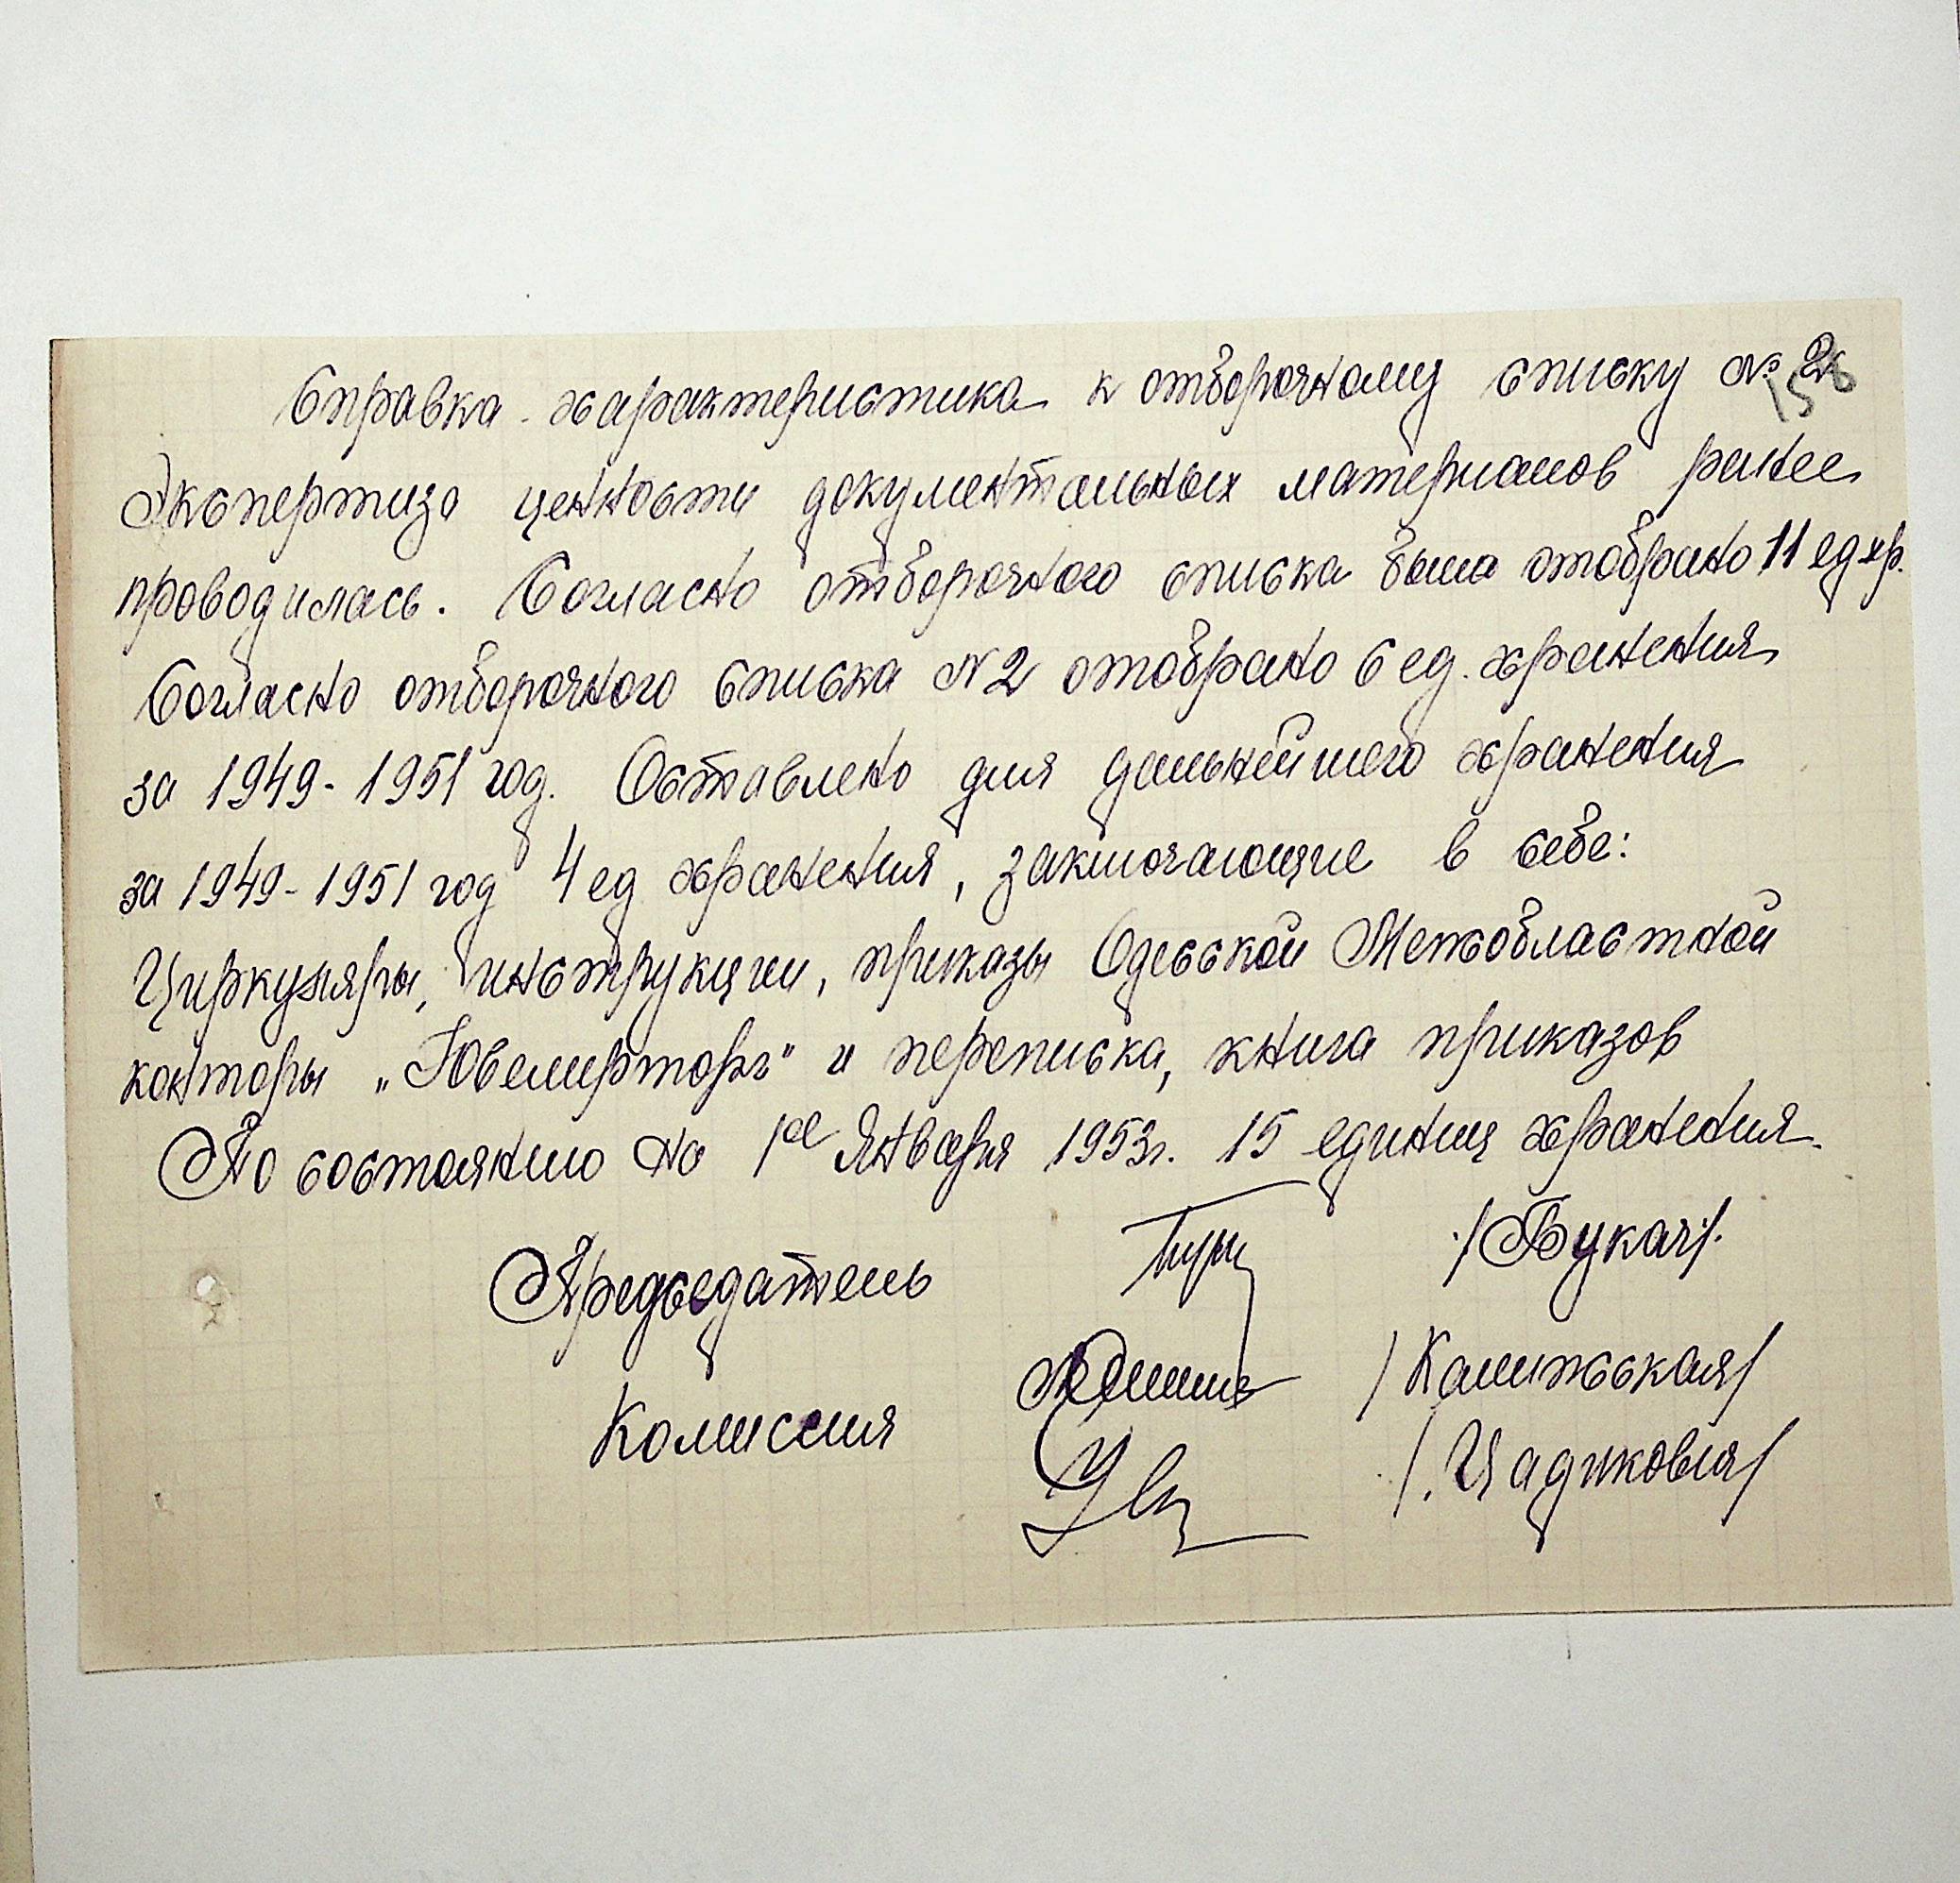 Справка - характеристика к отборочному списку № 2
156
Экспертиза ценности документальных материалов ранее
проводилась. Согласно отборочного списка было отобрано 11 ед хр.
Согласно отборочного списка N2 отобрано 6 ед. хранения
за 1949 - 1951 год. Оставлено для дальнейшего хранения
за 1949 - 1951 год 4 ед хранения, заключающие в себе:
Циркуляры, инструкции, приказы Одесской Межобластной
конторы „Ювелирторг" и переписка, книга приказов
По состоянию на 1ое Января 1953г. 15 единиц хранения.
Председатель /Букач/.
Комиссия /Калижсская/
/Цадиковия/